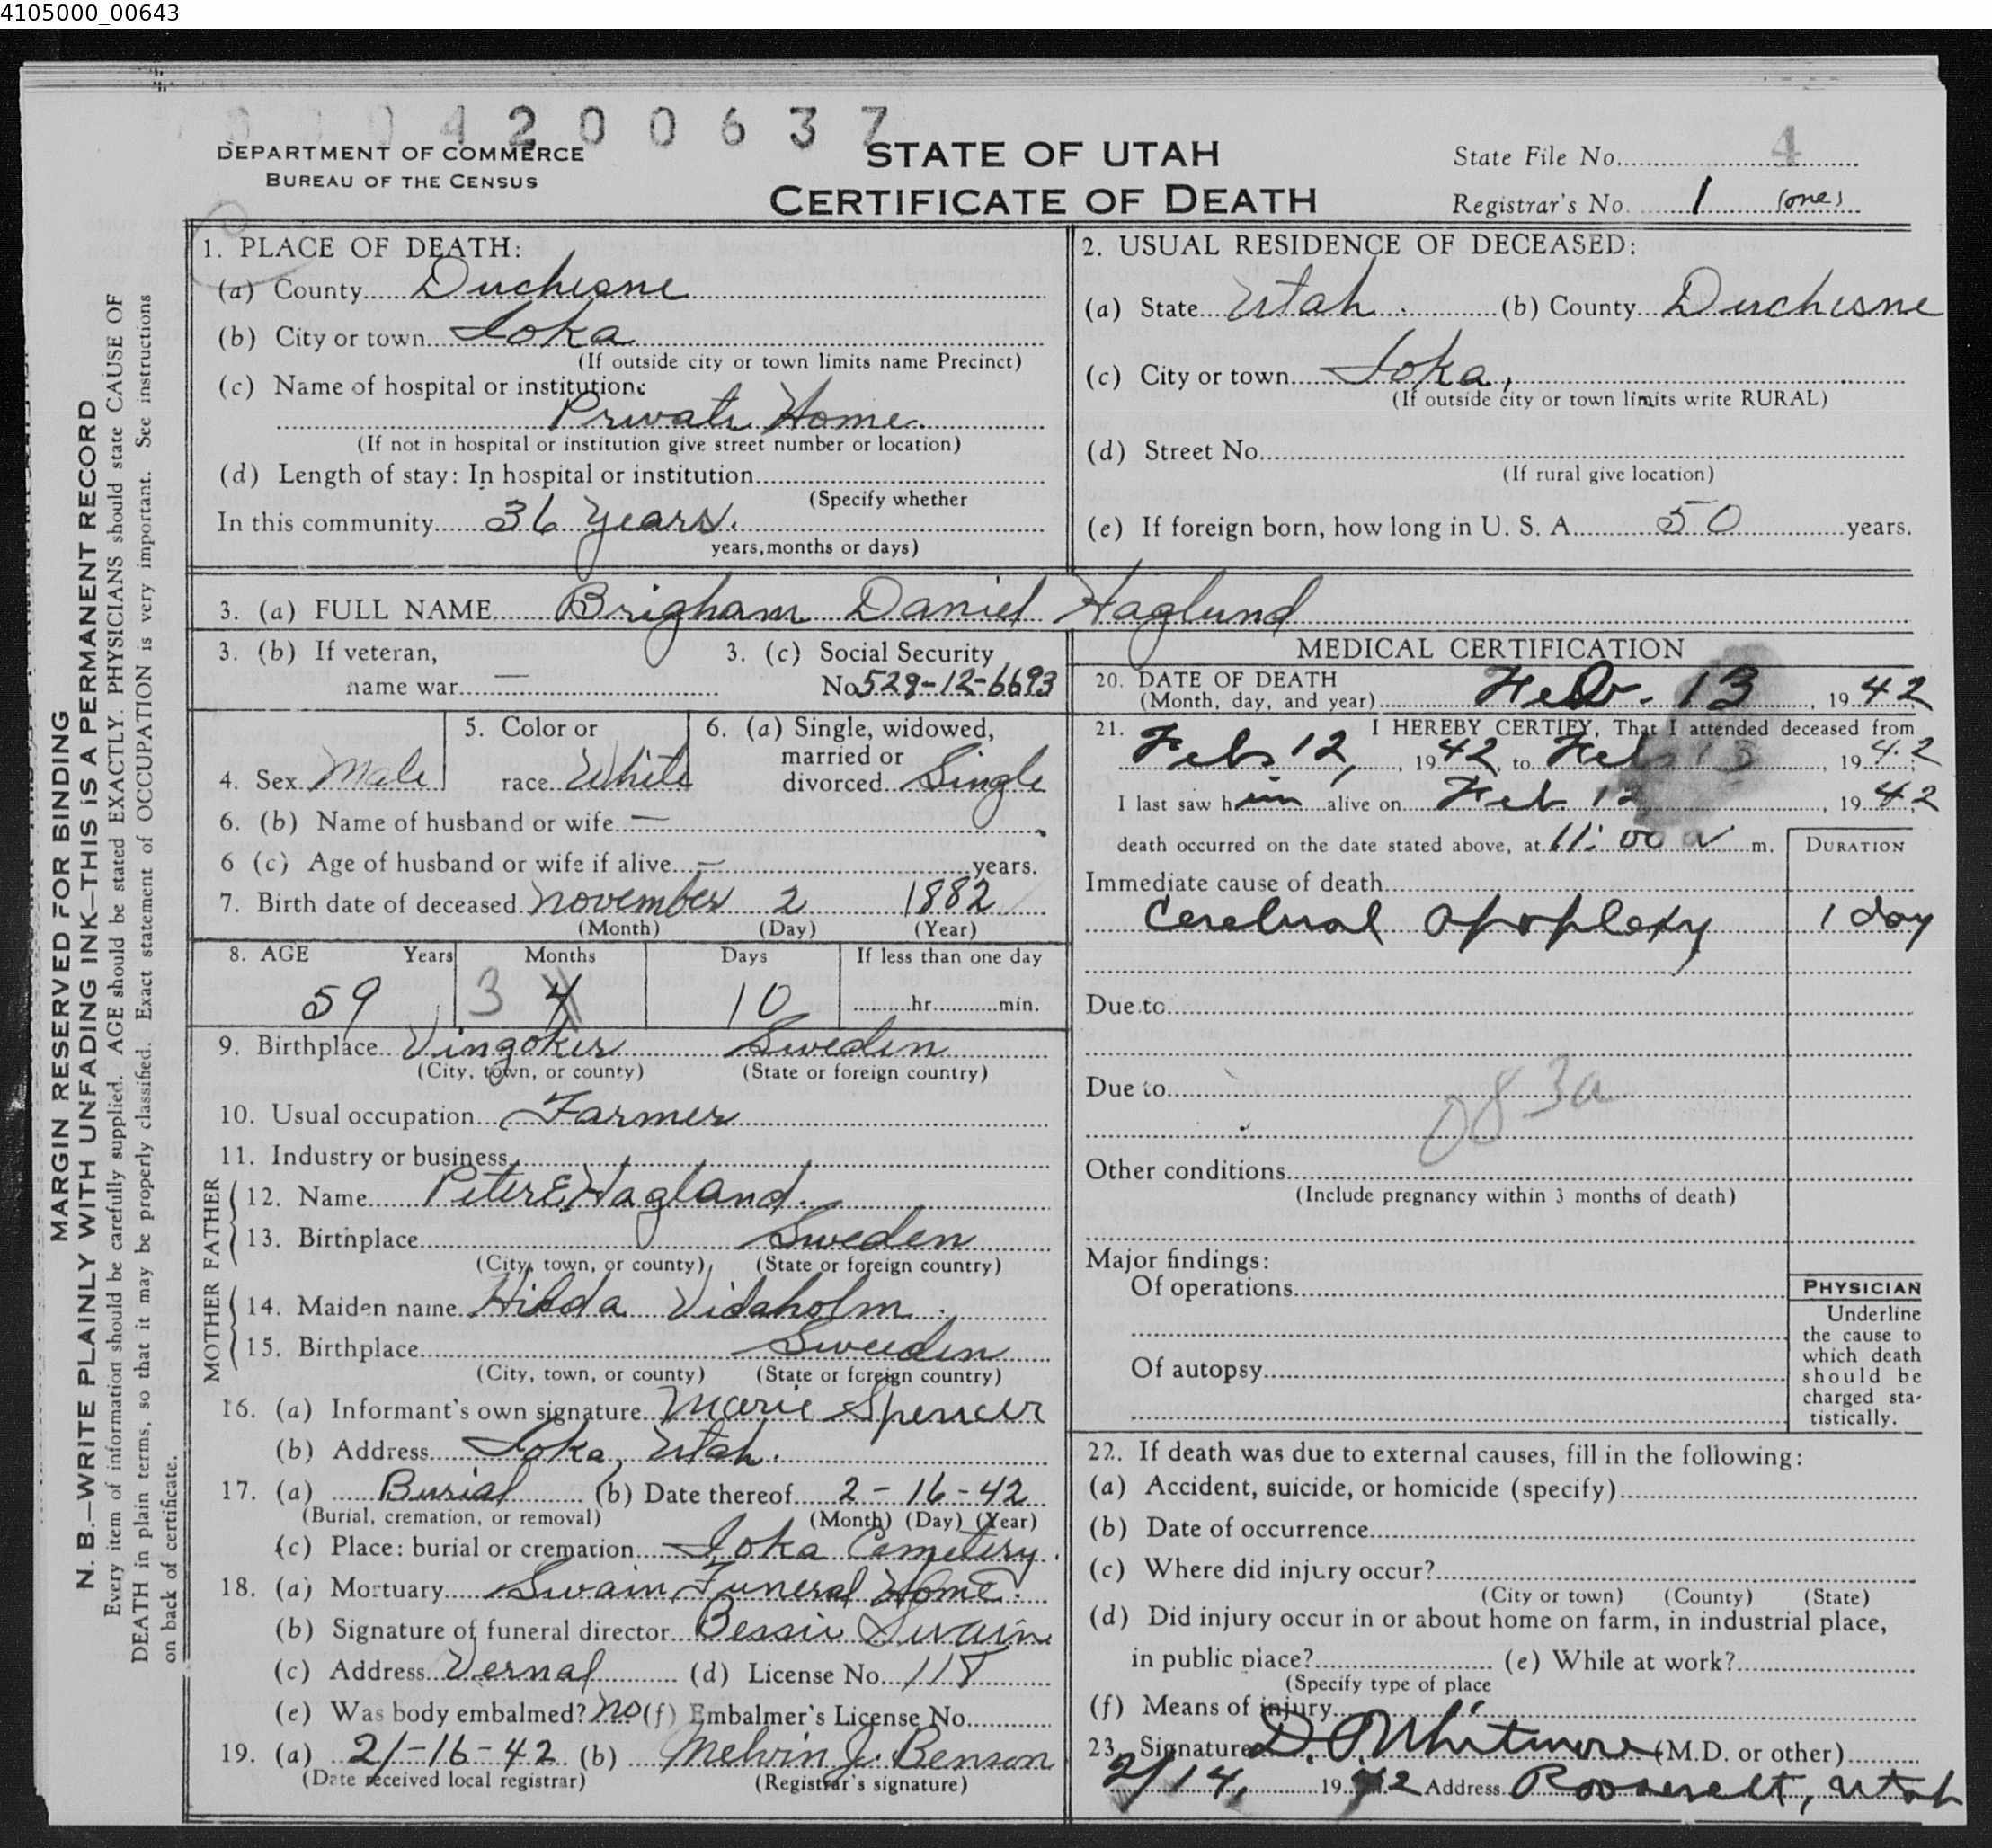 4105000_00643
4 2 0 0 6 3 7
DEPARTMENT OF COMMERCE
BUREAU OF THE CENSUS
STATE OF UTAH
CERTIFICATE OF DEATH
State File No. 4
Registrar's No. 1 (one)
MARGIN RESERVED FOR BINDING
N. B.—WRITE PLAINLY WITH UNFADING INK—THIS IS A PERMANENT RECORD
Every item of information should be carefully supplied. AGE should be stated EXACTLY. PHYSICIANS should state CAUSE OF
DEATH in plain terms, so that it may be properly classified. Exact statement of OCCUPATION is very important. See instructions
on back of certificate.
1. PLACE OF DEATH:
(a) County Duchesne
(b) City or town Ioka
(If outside city or town limits name Precinct)
(c) Name of hospital or institution:
Private Home
(If not in hospital or institution give street number or location)
(d) Length of stay: In hospital or institution
(Specify whether
In this community 36 years.
years, months or days)
2. USUAL RESIDENCE OF DECEASED:
(a) State Utah (b) County Duchesne
(c) City or town Ioka,
(If outside city or town limits write RURAL)
(d) Street No.
(If rural give location)
(e) If foreign born, how long in U. S. A. 50 years.
3. (a) FULL NAME Brigham Daniel Haglund
3. (b) If veteran,
name war —
3. (c) Social Security
No. 529-12-6693
4. Sex Male
5. Color or
race White
6. (a) Single, widowed,
married or
divorced Single
6. (b) Name of husband or wife —
6 (c) Age of husband or wife if alive — years.
7. Birth date of deceased November 2 1882
(Month) (Day) (Year)
8. AGE Years Months Days If less than one day
59 3 4 10 hr. min.
9. Birthplace Vingoker Sweden
(City, town, or county) (State or foreign country)
10. Usual occupation Farmer
11. Industry or business
FATHER
12. Name Peter E Hagland.
13. Birthplace Sweden
(City, town, or county) (State or foreign country)
MOTHER
14. Maiden name Hilda Vidaholm
15. Birthplace Sweden
(City, town, or county) (State or foreign country)
16. (a) Informant's own signature Marie Spencer
(b) Address Ioka, Utah.
17. (a) Burial (b) Date thereof 2-16-42
(Burial, cremation, or removal) (Month) (Day) (Year)
(c) Place: burial or cremation Ioka Cemetery.
18. (a) Mortuary Swain Funeral Home.
(b) Signature of funeral director Bessie Swain
(c) Address Vernal (d) License No. 118
(e) Was body embalmed? No (f) Embalmer's License No.
19. (a) 2/-16-42 (b) Melvin J. Benson
(Date received local registrar) (Registrar's signature)
MEDICAL CERTIFICATION
20. DATE OF DEATH
(Month, day, and year) Feb. 13, 1942
21. I HEREBY CERTIFY, That I attended deceased from
Feb 12, 1942, to Feb 13, 1942
I last saw him alive on Feb 12, 1942
death occurred on the date stated above, at 11:00 a m.
DURATION
Immediate cause of death
Cerebral apoplexy 1 day
Due to
Due to
083a
Other conditions
(Include pregnancy within 3 months of death)
Major findings:
Of operations
Of autopsy
PHYSICIAN
Underline
the cause to
which death
should be
charged sta-
tistically.
22. If death was due to external causes, fill in the following:
(a) Accident, suicide, or homicide (specify)
(b) Date of occurrence
(c) Where did injury occur?
(City or town) (County) (State)
(d) Did injury occur in or about home on farm, in industrial place,
in public place? (e) While at work?
(Specify type of place
(f) Means of injury
23. Signature Whitmore (M.D. or other)
2/14, 1942 Address Roosevelt, Utah